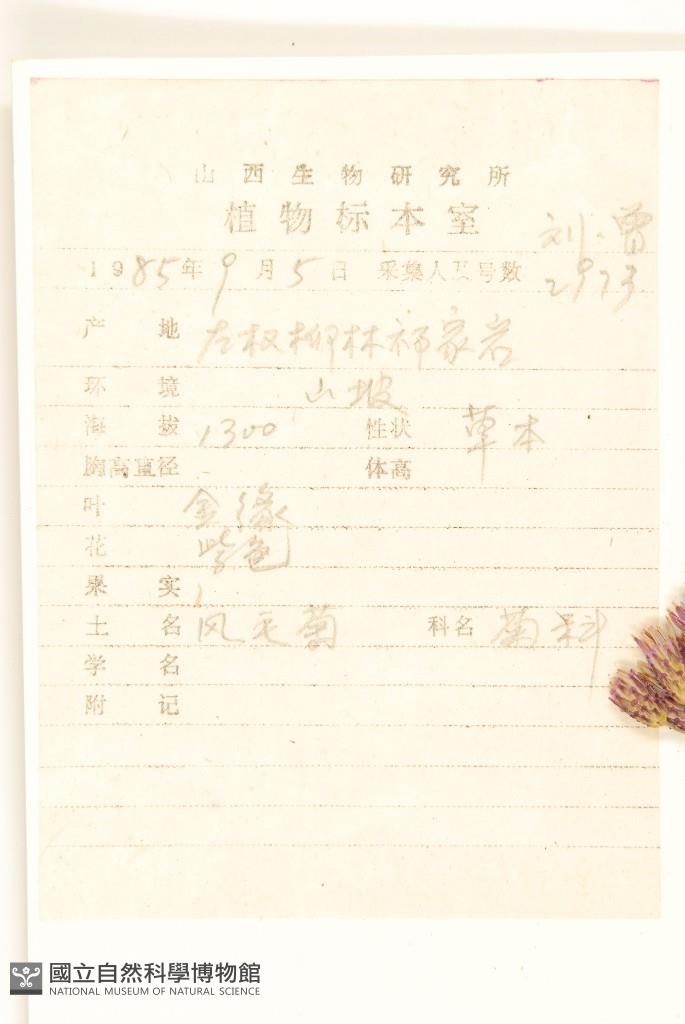 山西生物研究所
植物标本室
刘、曾
1985年9月5日 采集人及号数 2973
产地 左权柳林祁家岩
环境 山坡
海拔 1300 性状 草本
胸高直径 体高
叶 全缘
花 紫色
果实
土名 风毛菊 科名 菊科
学名
附记
國立自然科學博物館
NATIONAL MUSEUM OF NATURAL SCIENCE